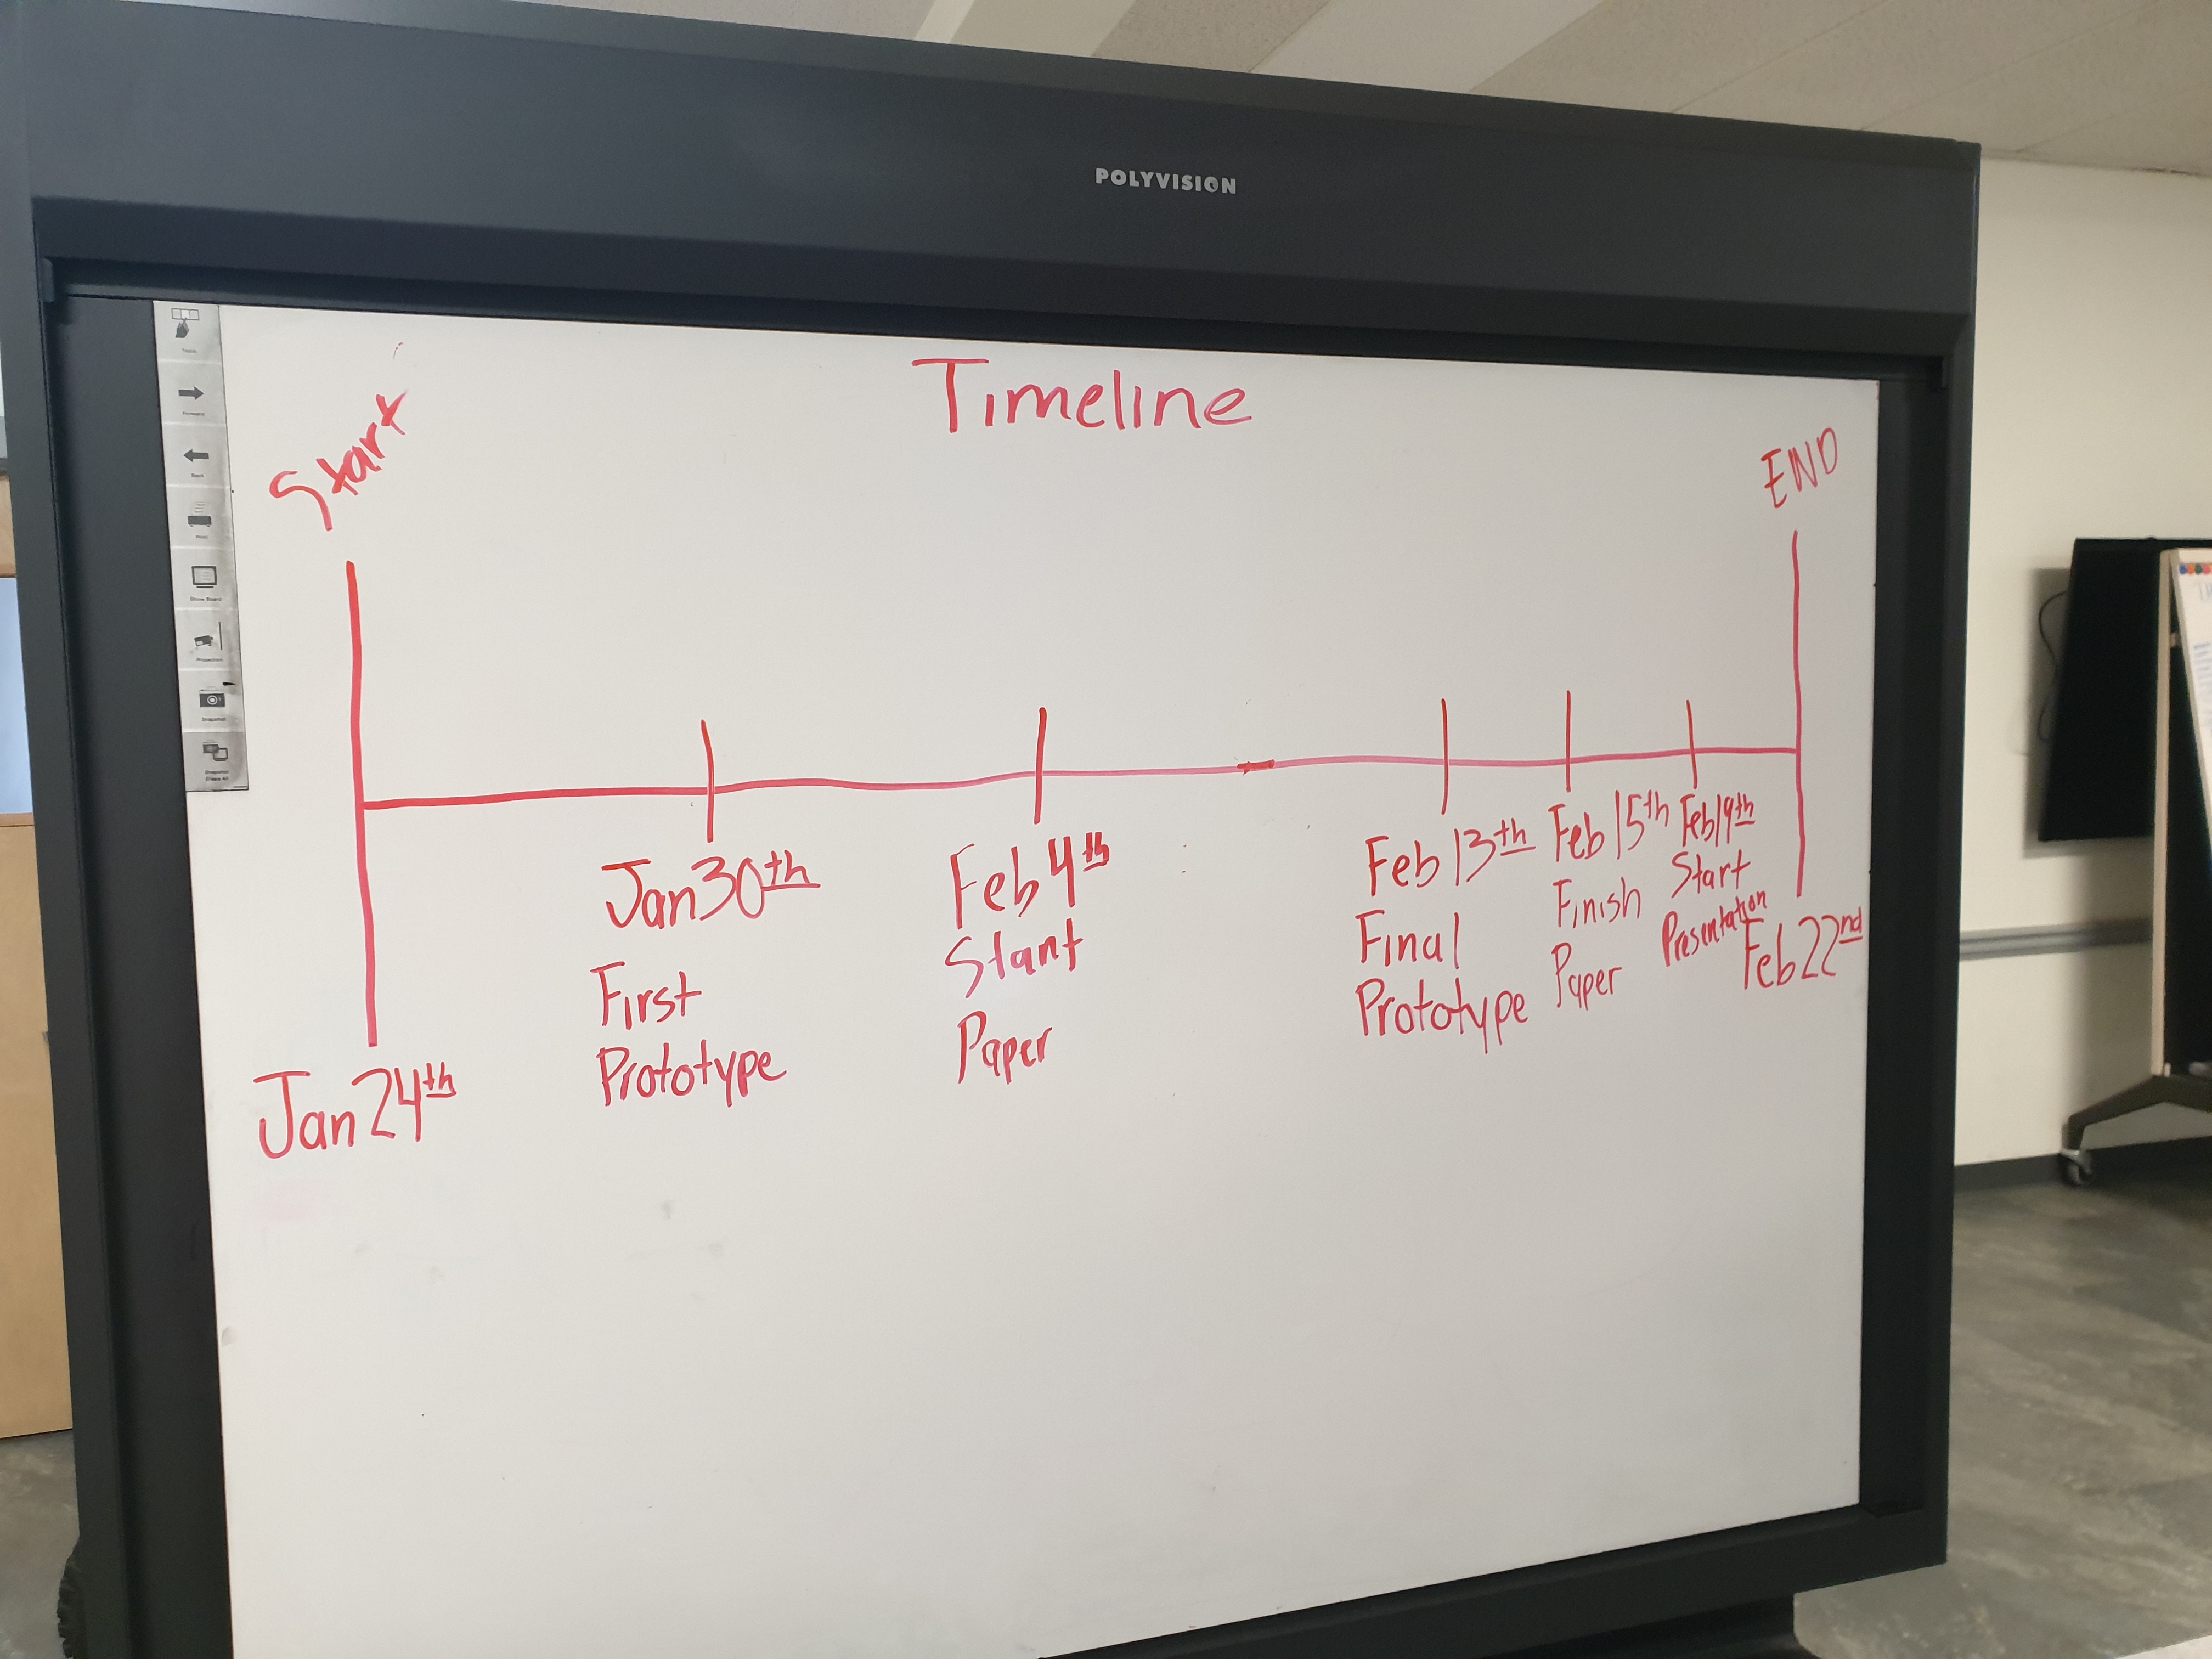 POLYVISION
Timeline
Start
END
Tools
Forward
Back
Print
Show Board
Projection
Snapshot
Snapshot
Erase All
Jan 24th
Jan 30th
First
Prototype
Feb 4th
Start
Paper
Feb 13th
Final
Prototype
Feb 15th
Finish
Paper
Feb 19th
Start
Presentation
Feb 22nd